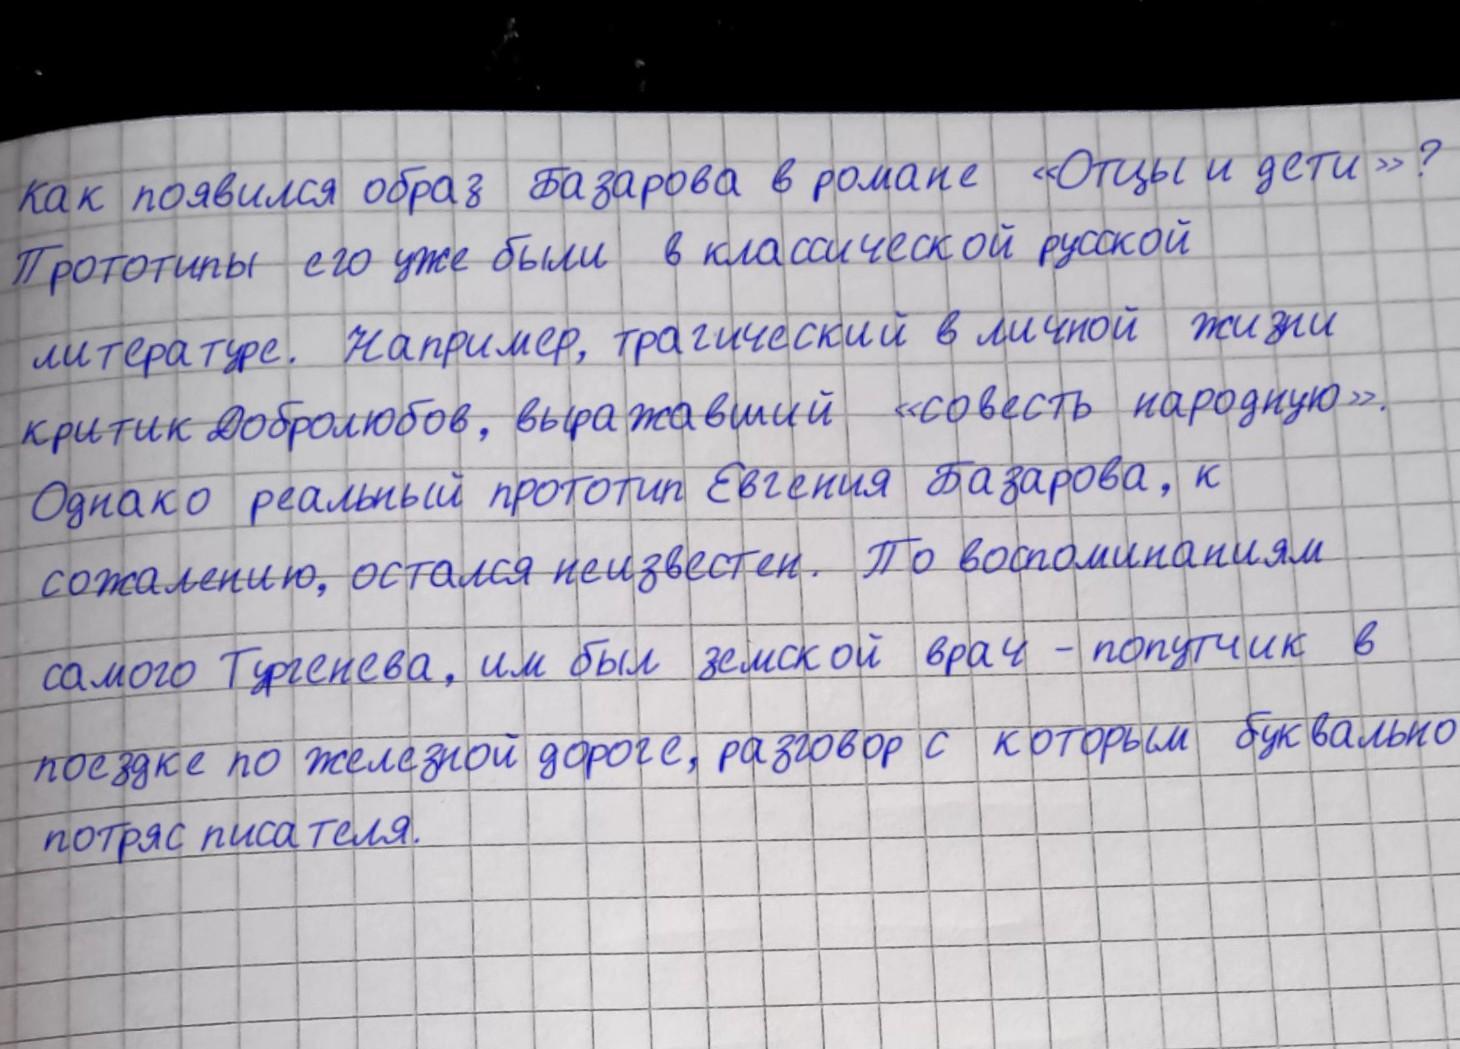 Как появился образ Базарова в романе «Отцы и дети»?
Прототипы его уже были в классической русской
литературе. Например, трагический в личной жизни
критик Добролюбов, выражавший «совесть народную».
Однако реальный прототип Евгения Базарова, к
сожалению, остался неизвестен. По воспоминаниям
самого Тургенева, им был земской врач - попутчик в
поездке по железной дороге, разговор с которым буквально
потряс писателя.